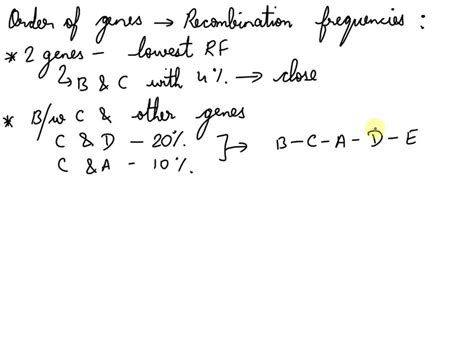 Order of genes → Recombination frequencies :
* 2 genes - lowest RF
↳ B & C with 4% → close
* B/w C & other genes
C & D - 20% } → B-C-A-D-E
C & A - 10%.